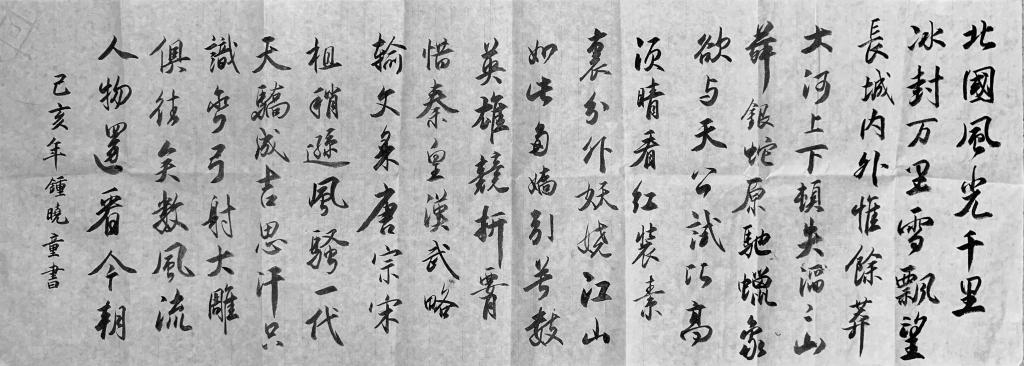 北國風光千里
冰封万里雪飄望
長城内外惟餘莽
大河上下頓失滔〻山
舞銀蛇原馳蠟象
欲与天公試比高
须晴看红装素
裹分外妖娆江山
如此多嬌引無數
英雄競折腰
惜秦皇漢武略
輸文采唐宗宋
祖稍遜風騷一代
天驕成吉思汗只
識彎弓射大雕
俱往矣數風流
人物還看今朝
己亥年鍾曉童書